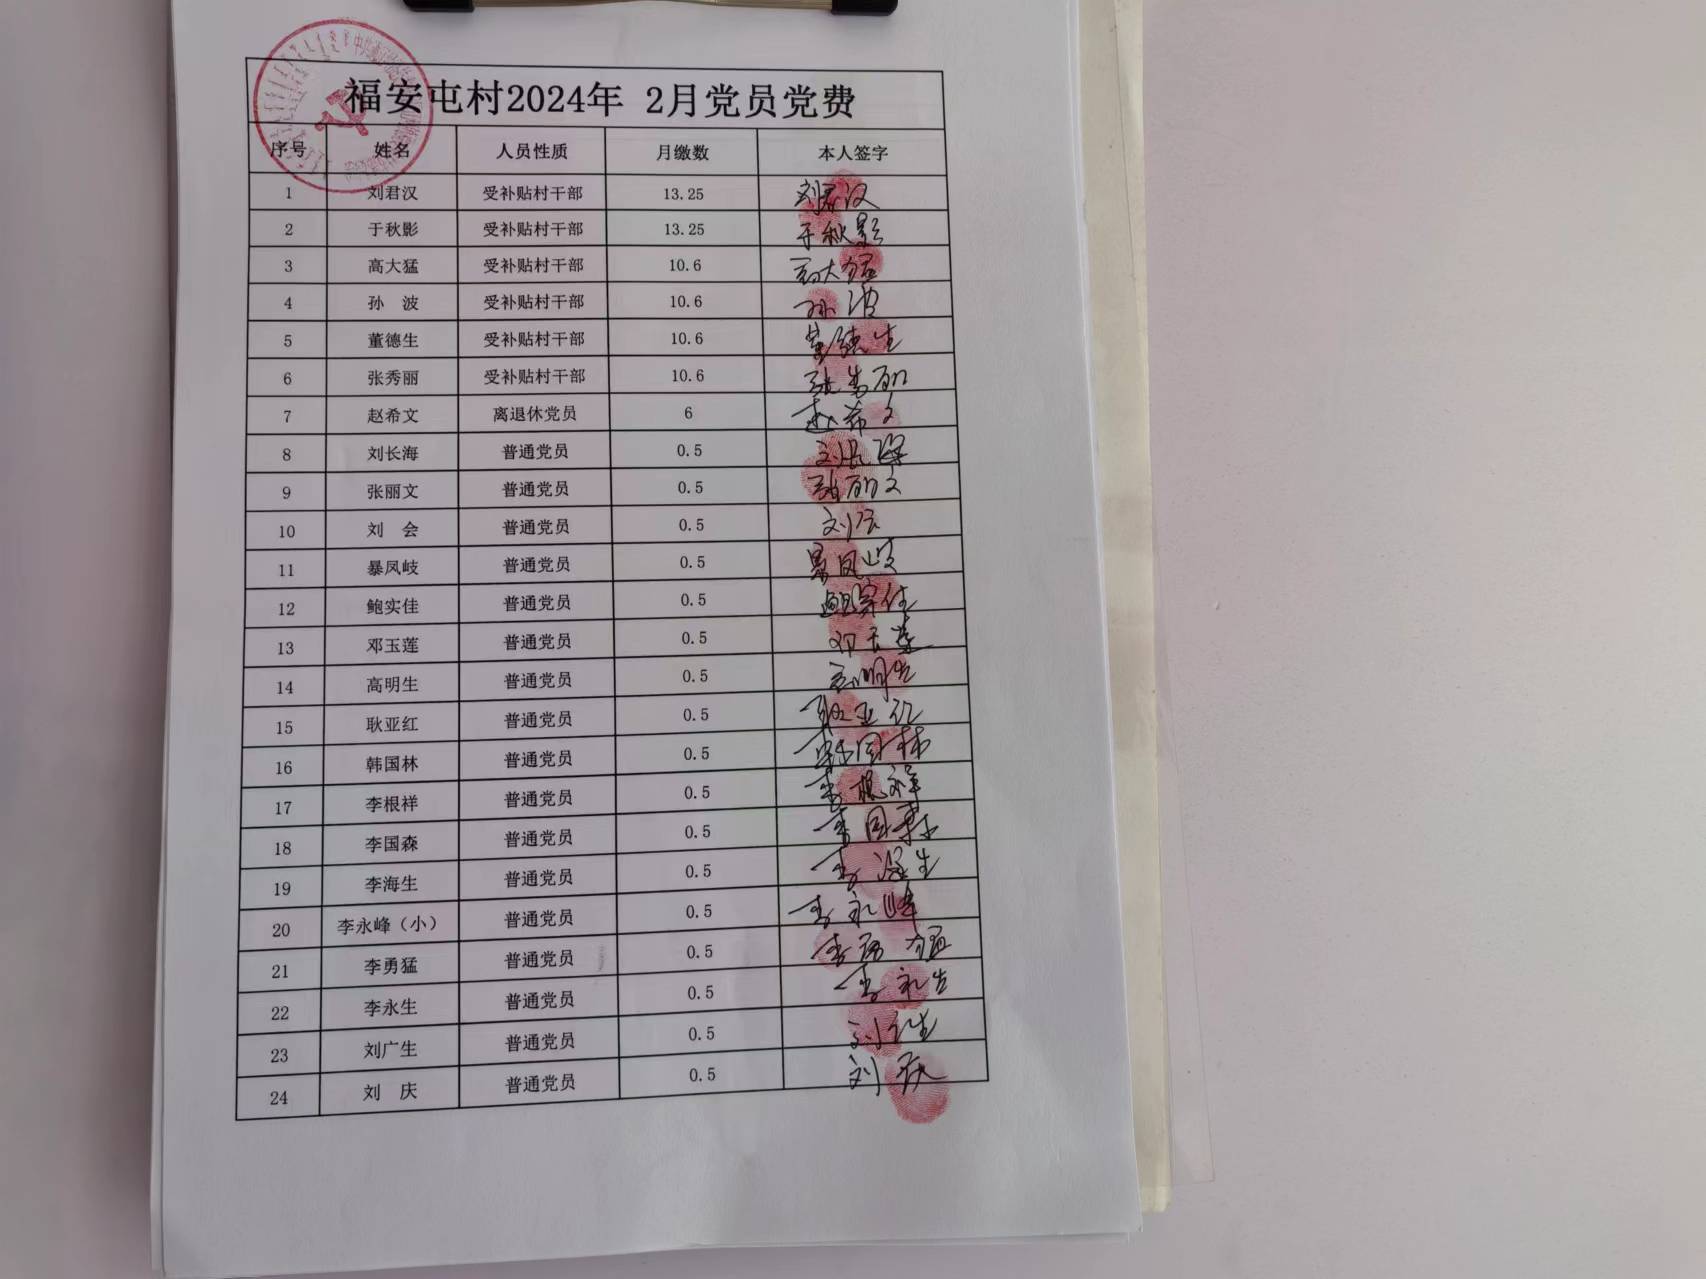 福安屯村2024年 2月党员党费
序号 姓名 人员性质 月缴数 本人签字
1 刘君汉 受补贴村干部 13.25 刘君汉
2 于秋影 受补贴村干部 13.25 于秋影
3 高大猛 受补贴村干部 10.6 高大猛
4 孙 波 受补贴村干部 10.6 孙波
5 董德生 受补贴村干部 10.6 董德生
6 张秀丽 受补贴村干部 10.6 张秀丽
7 赵希文 离退休党员 6 赵希文
8 刘长海 普通党员 0.5 刘长海
9 张丽文 普通党员 0.5 张丽文
10 刘 会 普通党员 0.5 刘会
11 暴凤岐 普通党员 0.5 暴凤岐
12 鲍实佳 普通党员 0.5 鲍实佳
13 邓玉莲 普通党员 0.5 邓玉莲
14 高明生 普通党员 0.5 高明生
15 耿亚红 普通党员 0.5 耿亚红
16 韩国林 普通党员 0.5 韩国林
17 李根祥 普通党员 0.5 李根祥
18 李国森 普通党员 0.5 李国森
19 李海生 普通党员 0.5 李海生
20 李永峰（小） 普通党员 0.5 李永峰
21 李勇猛 普通党员 0.5 李勇猛
22 李永生 普通党员 0.5 李永生
23 刘广生 普通党员 0.5 刘广生
24 刘 庆 普通党员 0.5 刘庆